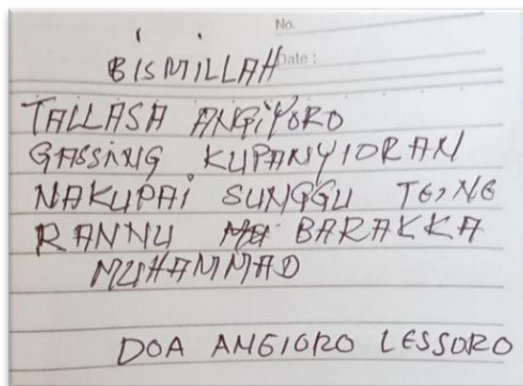 No.
Date :
BISMILLAH
TALLASA ANGIYORO
GASSING KUPANYIORAN
NAKUPAI SUNGGU TE,NE
RANNU BARAKKA
MUHAMMAD
DOA ANGIORO LESSORO